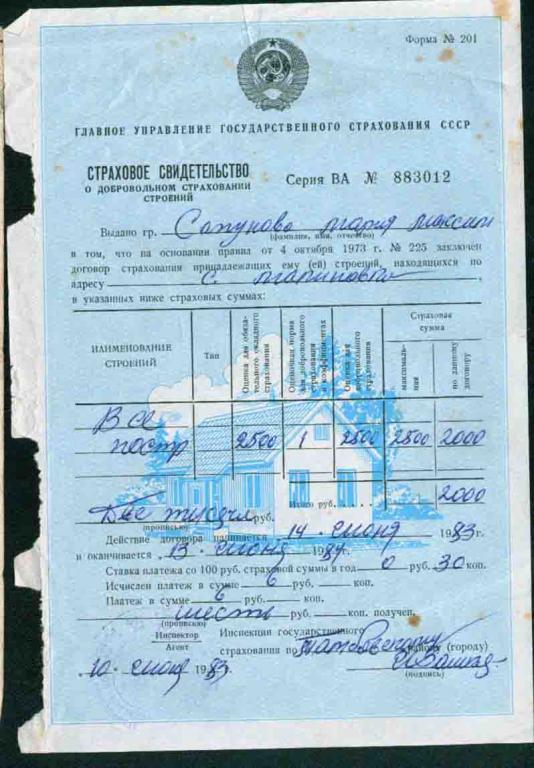 Форма № 201
ГЛАВНОЕ УПРАВЛЕНИЕ ГОСУДАРСТВЕННОГО СТРАХОВАНИЯ СССР
СТРАХОВОЕ СВИДЕТЕЛЬСТВО
О ДОБРОВОЛЬНОМ СТРАХОВАНИИ
СТРОЕНИЙ
Серия ВА № 883012
Выдано гр. Сапунова Мария Максим
(фамилия, имя, отчество)
в том, что на основании правил от 4 октября 1973 г. № 225 заключен
договор страхования принадлежащих ему (ей) строений, находящихся по
адресу с.
в указанных ниже страховых суммах:
НАИМЕНОВАНИЕ СТРОЕНИЙ
Тип
Оценка для обязательного окладного страхования
Оценочная норма для добровольного страхования и коэффициентах
Оценка для добровольного страхования
Страховая сумма
максимальная
по данному договору
Все
постр 2500 1 2500 2500 2000
Итого руб. 2000
Две тысячи руб.
(прописью)
Действие договора начинается 14 июня 1983 г.
и оканчивается 13 июня 1984 г.
Ставка платежа со 100 руб. страховой суммы в год 0 руб. 30 коп.
Исчислен платеж в сумме 6 руб. — коп.
Платеж в сумме 6 руб. — коп.
шесть руб. — коп. получен.
(прописью)
Инспектор
Агент
Инспекции государственного
страхования по району (городу)
10 июня 1983
(подпись)